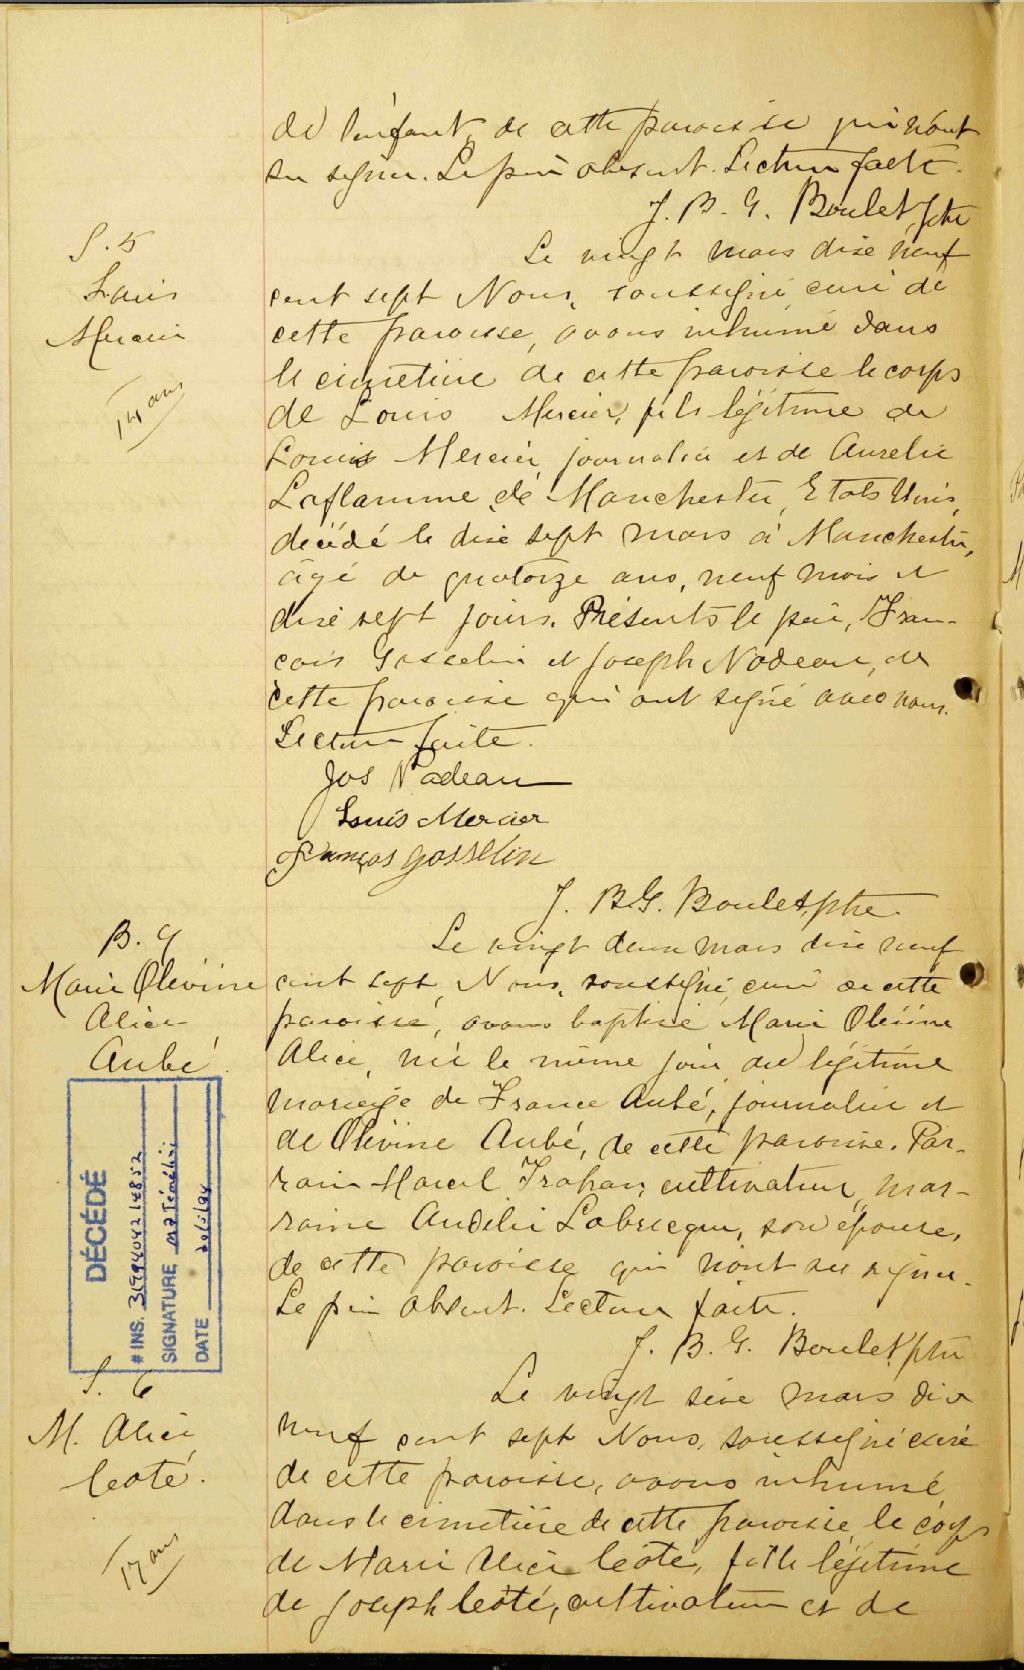 de l'enfant, de cette paroisse qui n'ont
su signer. Le père absent. Lecture faite.
J. B. G. Boulet, ptre
S. 5
Louis
Mercier
14 ans
Le vingt mars dix neuf
cent sept Nous, soussigné, curé de
cette paroisse, avons inhumé dans
le cimetière de cette paroisse le corps
de Louis Mercier, fils légitime de
Louis Mercier, journalier et de Aurelie
Laflamme, de Manchester, Etats Unis,
décédé le dix sept mars à Manchester,
âgé de quatorze ans, neuf mois et
dix sept jours. Présents le père, Fran-
çois Gosselin et Joseph Nadeau, de
cette paroisse qui ont signé avec nous.
Lecture faite.
Jos Nadeau
Louis Mercier
François Gosselin
J. B. G. Boulet, ptre.
B. 9
Marie Olévine
Alice
Aubé
Le vingt deux mars dix neuf
cent sept, Nous, soussigné, curé de cette
paroisse, avons baptisé Marie Olévine
Alice, née le même jour du légitime
mariage de France Aubé, journalier et
de Olévine Aubé, de cette paroisse. Par-
rain Marcel Trahan, cultivateur, mar-
raine Audélie Labrecque, son épouse,
de cette paroisse qui n'ont su signer.
Le père absent. Lecture faite.
J. B. G. Boulet, ptre
DÉCÉDÉ
# INS.
SIGNATURE
DATE
S. 6
M. Alice
Coté.
17 ans
Le vingt six mars dix
neuf cent sept Nous, soussigné curé
de cette paroisse, avons inhumé
dans le cimetière de cette paroisse le corps
de Marie Alice Coté, fille légitime
de Joseph Coté, cultivateur et de